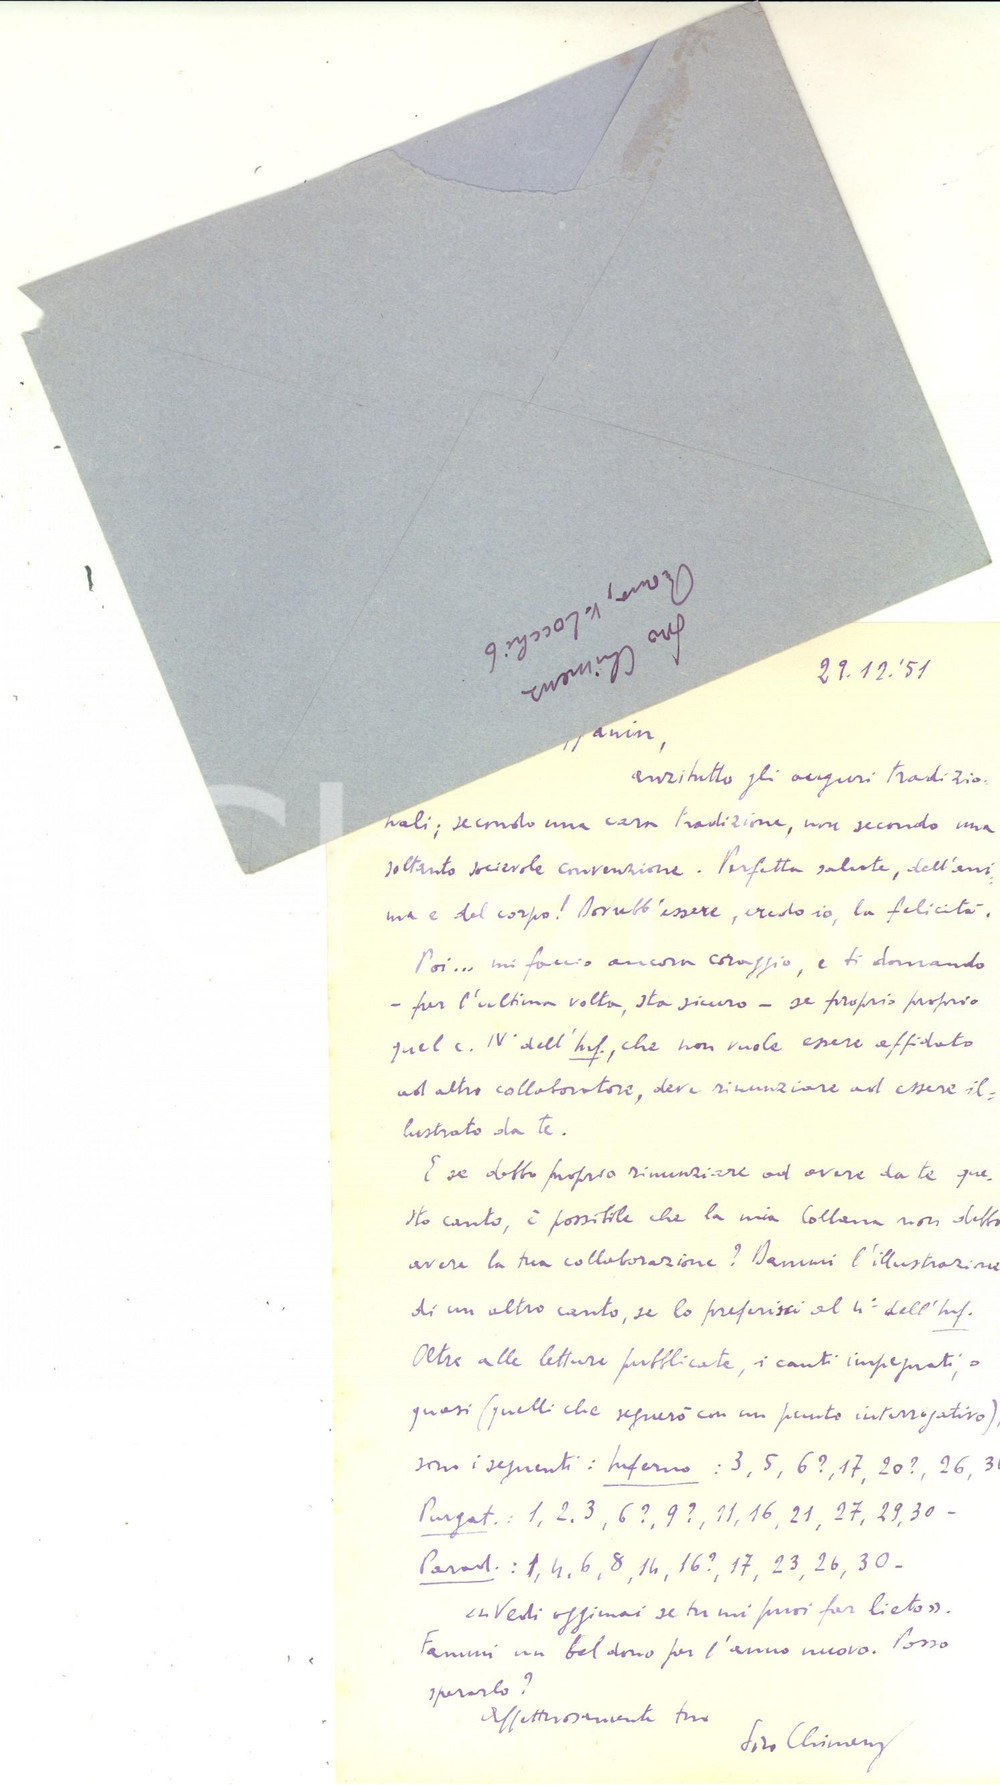 Siro Chimenz
Roma, V. Locchi 6
29.12.'51
anzitutto gli auguri tradizio-
nali; secondo una cara tradizione, non secondo una
soltanto socievole convenzione. Perfetta salute, dell'ani-
ma e del corpo! Dovrebb'essere, credo io, la felicità.
Poi... mi faccio ancora coraggio, e ti domando
- per l'ultima volta, sta sicuro - se proprio proprio
quel c. IV° dell'Inf., che non vuole essere affidato
ad altro collaboratore, deve rinunziare ad essere il-
lustrato da te.
E se debbo proprio rinunziare ad avere da te que-
sto canto, è possibile che la mia Collana non debba
avere la tua collaborazione? Dammi l'illustrazione
di un altro canto, se lo preferisci al 4° dell'Inf.
Oltre alle letture pubblicate, i canti impegnati, o
quasi (quelli che segnerò con un punto interrogativo),
sono i seguenti: Inferno: 3, 5, 6?, 17, 20?, 26,
Purgat.: 1, 2, 3, 6?, 9?, 11, 16, 21, 27, 29, 30 -
Parad.: 1, 4, 6, 8, 14, 16?, 17, 23, 26, 30 -
«Vedi oggimai se tu mi puoi far lieto».
Fammi un bel dono per l'anno nuovo. Posso
sperarlo?
Affettuosamente tuo
Siro Chimenz